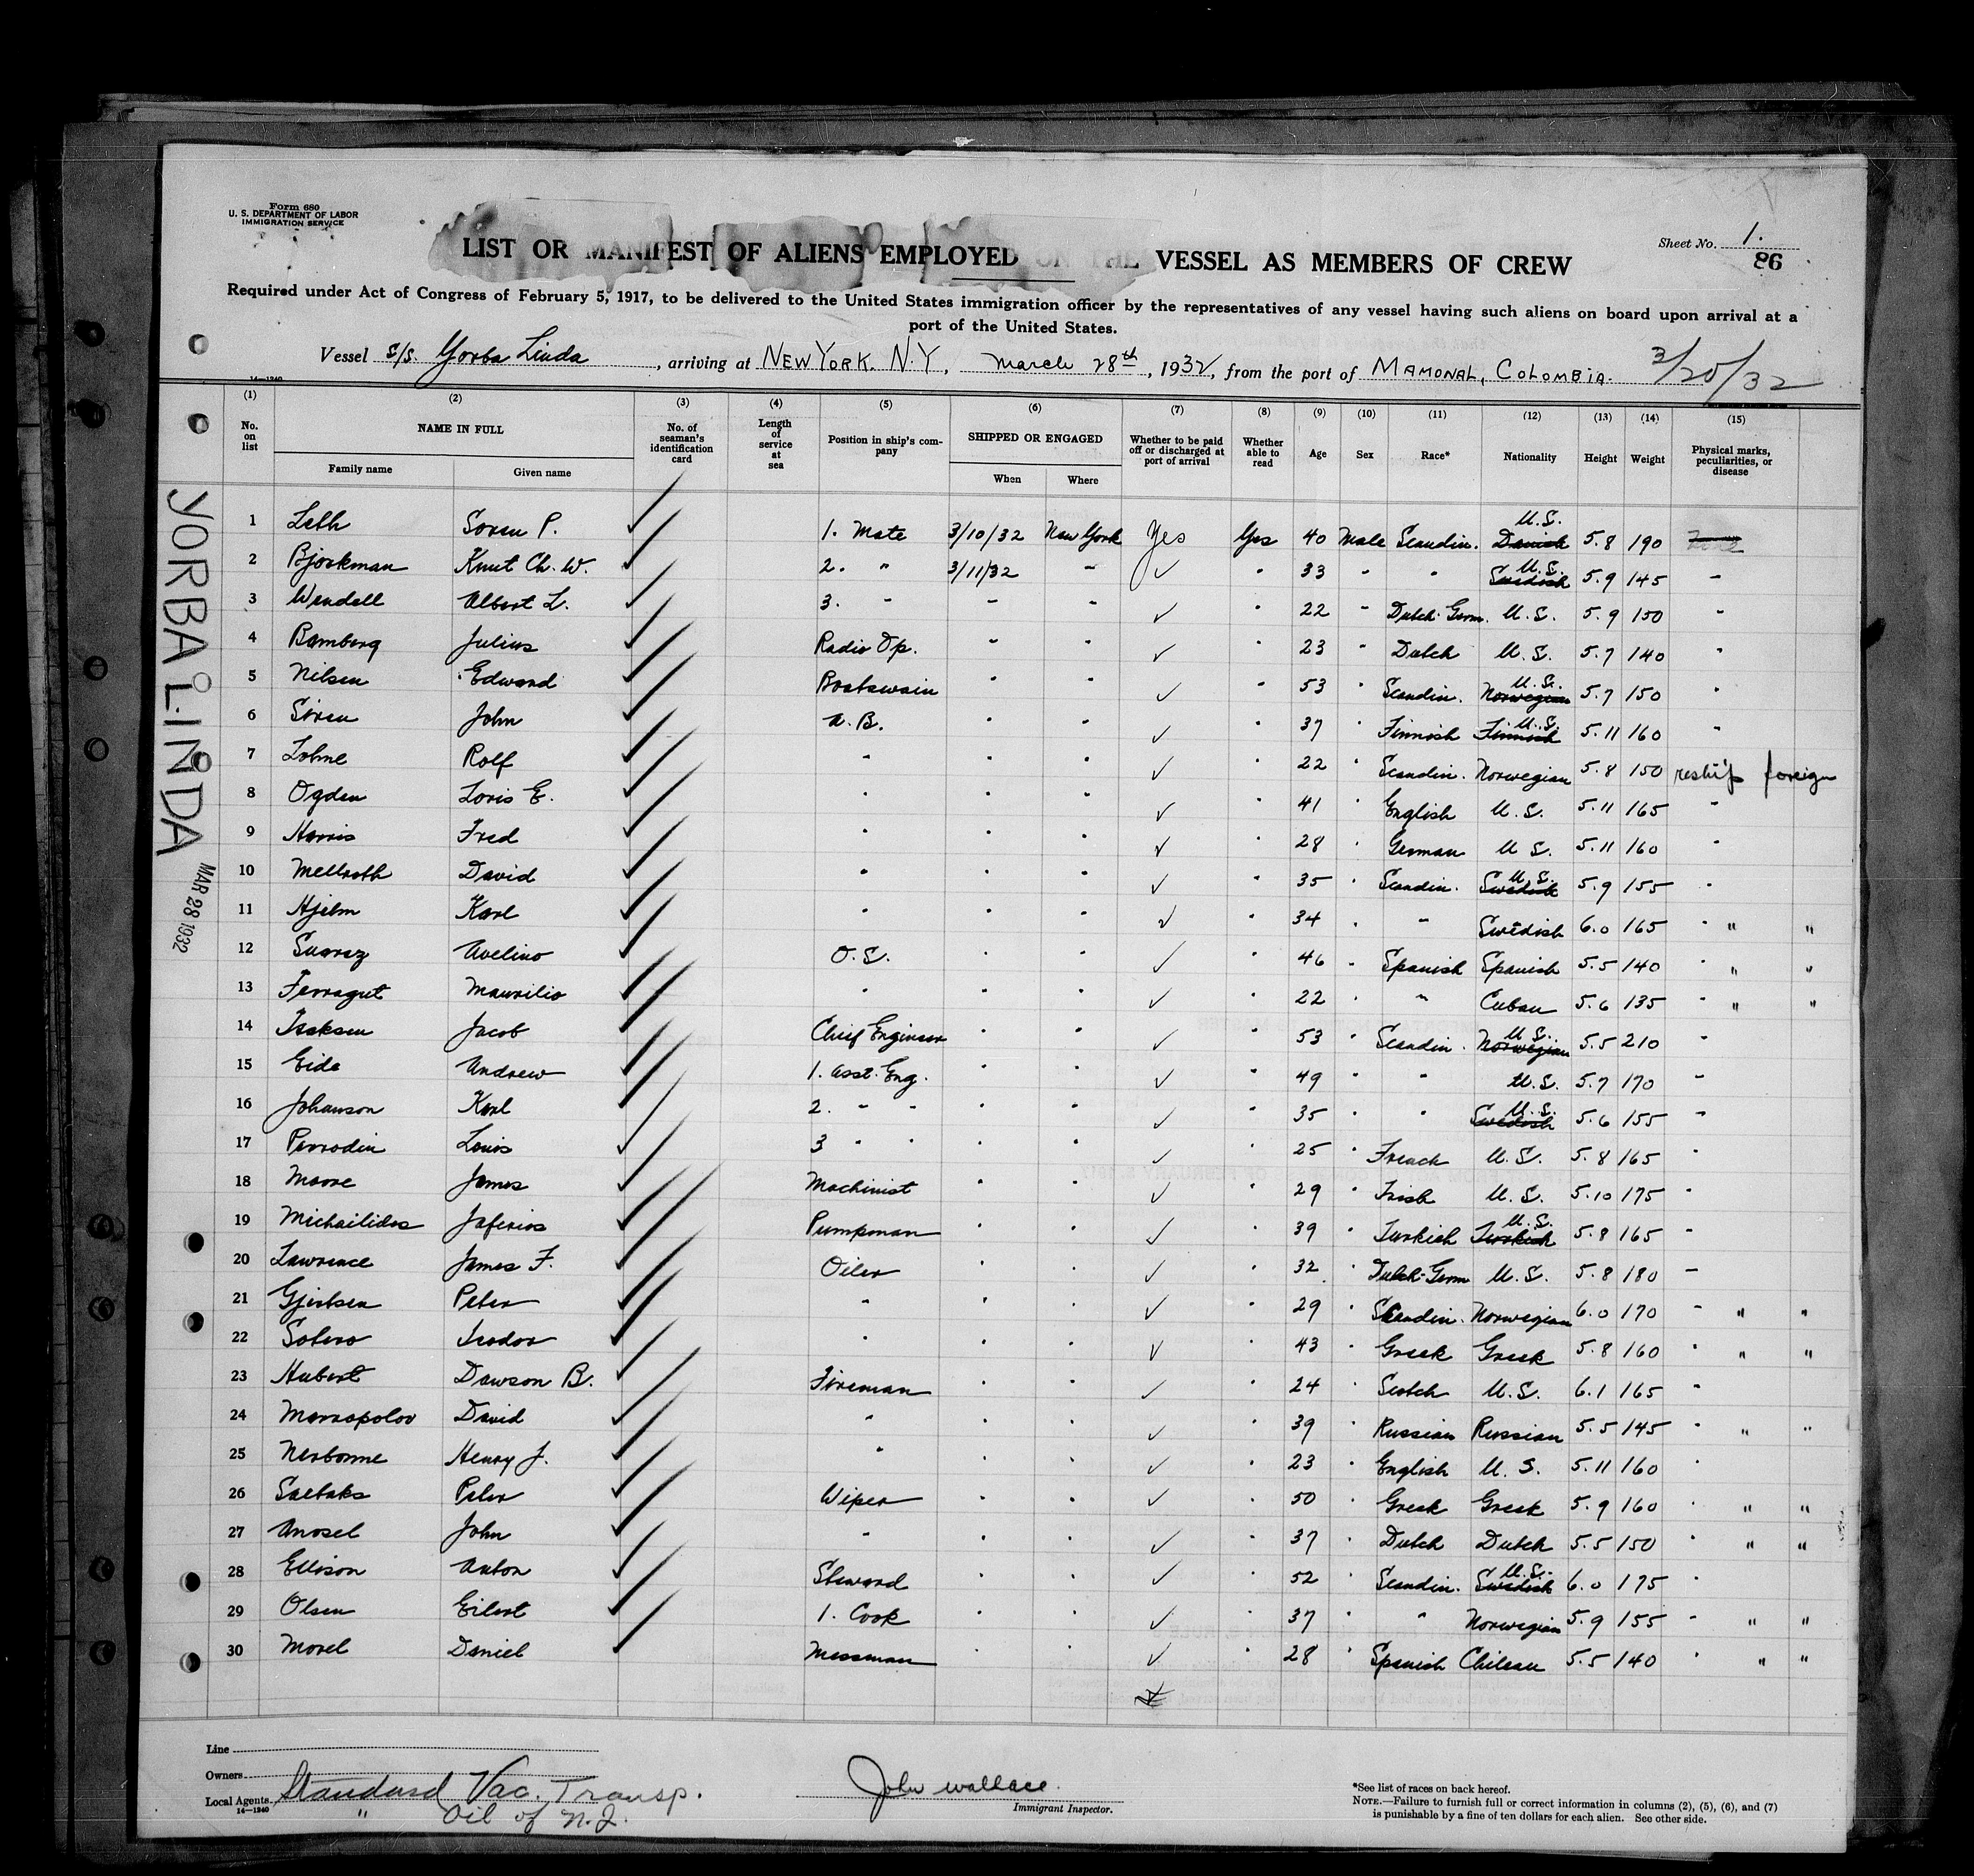 Form 680
U. S. DEPARTMENT OF LABOR
IMMIGRATION SERVICE
Sheet No. 1.
86
LIST OR MANIFEST OF ALIENS EMPLOYED ON THE VESSEL AS MEMBERS OF CREW
Required under Act of Congress of February 5, 1917, to be delivered to the United States immigration officer by the representatives of any vessel having such aliens on board upon arrival at a
port of the United States.
Vessel S/S. Yorba Linda, arriving at NEW YORK. N.Y., March 28th, 1932, from the port of MAMONAL, COLOMBIA. 3/20/32
14—1240
(1) (2) (3) (4) (5) (6) (7) (8) (9) (10) (11) (12) (13) (14) (15)
No. on list NAME IN FULL Family name Given name No. of seaman's identification card Length of service at sea Position in ship's company SHIPPED OR ENGAGED When Where Whether to be paid off or discharged at port of arrival Whether able to read Age Sex Race* Nationality Height Weight Physical marks, peculiarities, or disease
YORBA LINDA
MAR 28 1932
1 Leth Soren P. 1. Mate 3/10/32 New York Yes Yes 40 Male Scandin. Danish U.S. 5.8 190
2 Bjorkman Knut Ch. W. 2. " 3/11/32 " ✓ " 33 " " Swedish U.S. 5.9 145 "
3 Wendell Albert L. 3. " " " ✓ " 22 " Dutch-Germ. U.S. 5.9 150 "
4 Bamberg Julius Radio Op. " " ✓ " 23 " Dutch U.S. 5.7 140 "
5 Nilsen Edward Boatswain " " ✓ " 53 " Scandin. Norwegian U.S. 5.7 150 "
6 Siren John A.B. " " ✓ " 37 " Finnish Finnish U.S. 5.11 160 "
7 Lohne Rolf " " " ✓ " 22 " Scandin. Norwegian 5.8 150 reship foreign
8 Ogden Loris E. " " " ✓ " 41 " English U.S. 5.11 165 "
9 Harris Fred " " " ✓ " 28 " German U.S. 5.11 160 "
10 Mellroth David " " " ✓ " 35 " Scandin. Swedish U.S. 5.9 155 "
11 Hjelm Karl " " " ✓ " 34 " " Swedish 6.0 165 " " "
12 Suarez Avelino O.S. " " ✓ " 46 " Spanish Spanish 5.5 140 " " "
13 Ferragut Maurilio " " " ✓ " 22 " " Cuban 5.6 135 " " "
14 Isaksen Jacob Chief Engineer " " ✓ " 53 " Scandin. Norwegian U.S. 5.5 210 "
15 Eide Andrew 1. Asst. Eng. " " ✓ " 49 " " U.S. 5.7 170 "
16 Johanson Karl 2. " " " " ✓ " 35 " " Swedish U.S. 5.6 155 "
17 Perrodin Louis 3 " " " " ✓ " 25 " French U.S. 5.8 165 "
18 Moore James Machinist " " ✓ " 29 " Irish U.S. 5.10 175 "
19 Michailidos Jaferios Pumpman " " ✓ " 39 " Turkish Turkish U.S. 5.8 165 "
20 Lawrence James F. Oiler " " ✓ " 32 " Dutch-Germ U.S. 5.8 180 "
21 Gjertsen Peter " " " ✓ " 29 " Scandin. Norwegian 6.0 170 " " "
22 Sotero Isodor " " " ✓ " 43 " Greek Greek 5.8 160 " " "
23 Hubert Dawson B. Fireman " " ✓ " 24 " Scotch U.S. 6.1 165 "
24 David " " " ✓ " 39 " Russian Russian 5.5 145 " " "
25 Nerbonne Henry J. " " " ✓ " 23 " English U.S. 5.11 160 "
26 Saetaks Peter Wiper " " ✓ " 50 " Greek Greek 5.9 160 " " "
27 Anosel John " " " ✓ " 37 " Dutch Dutch 5.5 150 " " "
28 Ellison Anton Steward " " ✓ " 52 " Scandin. Swedish U.S. 6.0 175 "
29 Olsen Eilert 1. Cook " " ✓ " 37 " " Norwegian 5.9 155 " " "
30 Morel Daniel Messman " " ✓ " 28 " Spanish Chilean 5.5 140 " " "
Line
Owners
Local Agents Standard Vac. Transp.
14—1240 " Oil of N.J.
John Wallace
Immigrant Inspector.
*See list of races on back hereof.
NOTE.—Failure to furnish full or correct information in columns (2), (5), (6), and (7)
is punishable by a fine of ten dollars for each alien. See other side.